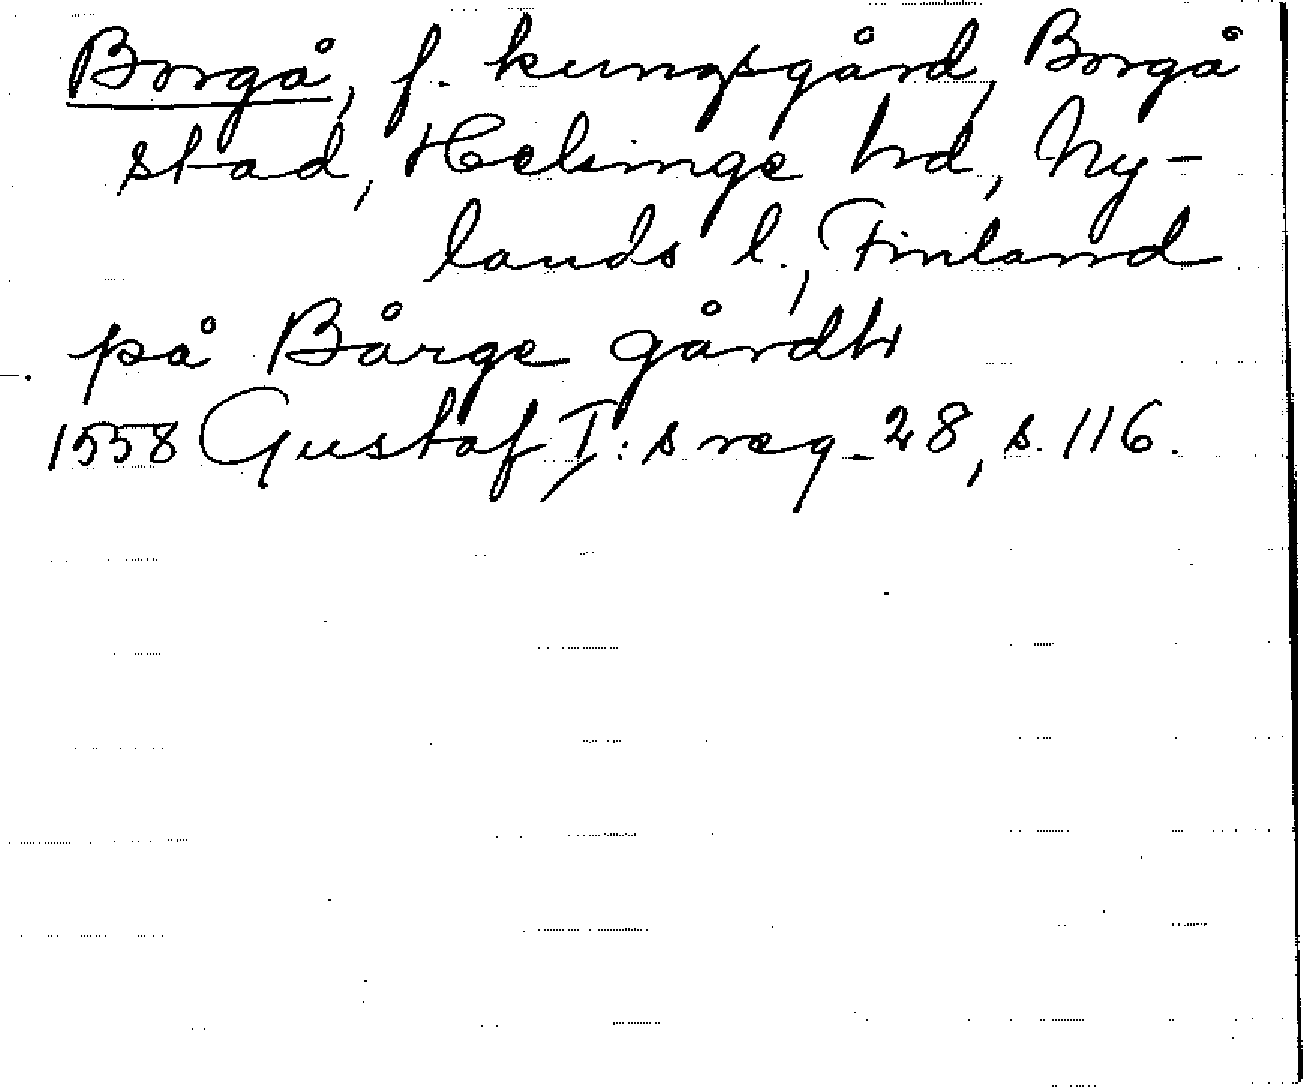 Borgå, f. kungsgård, Borgå
stad, Helsinge hd, Ny-
lands l., Finland
på Bårge gårdh
1558 Gustaf I:s reg. 28, s. 116.